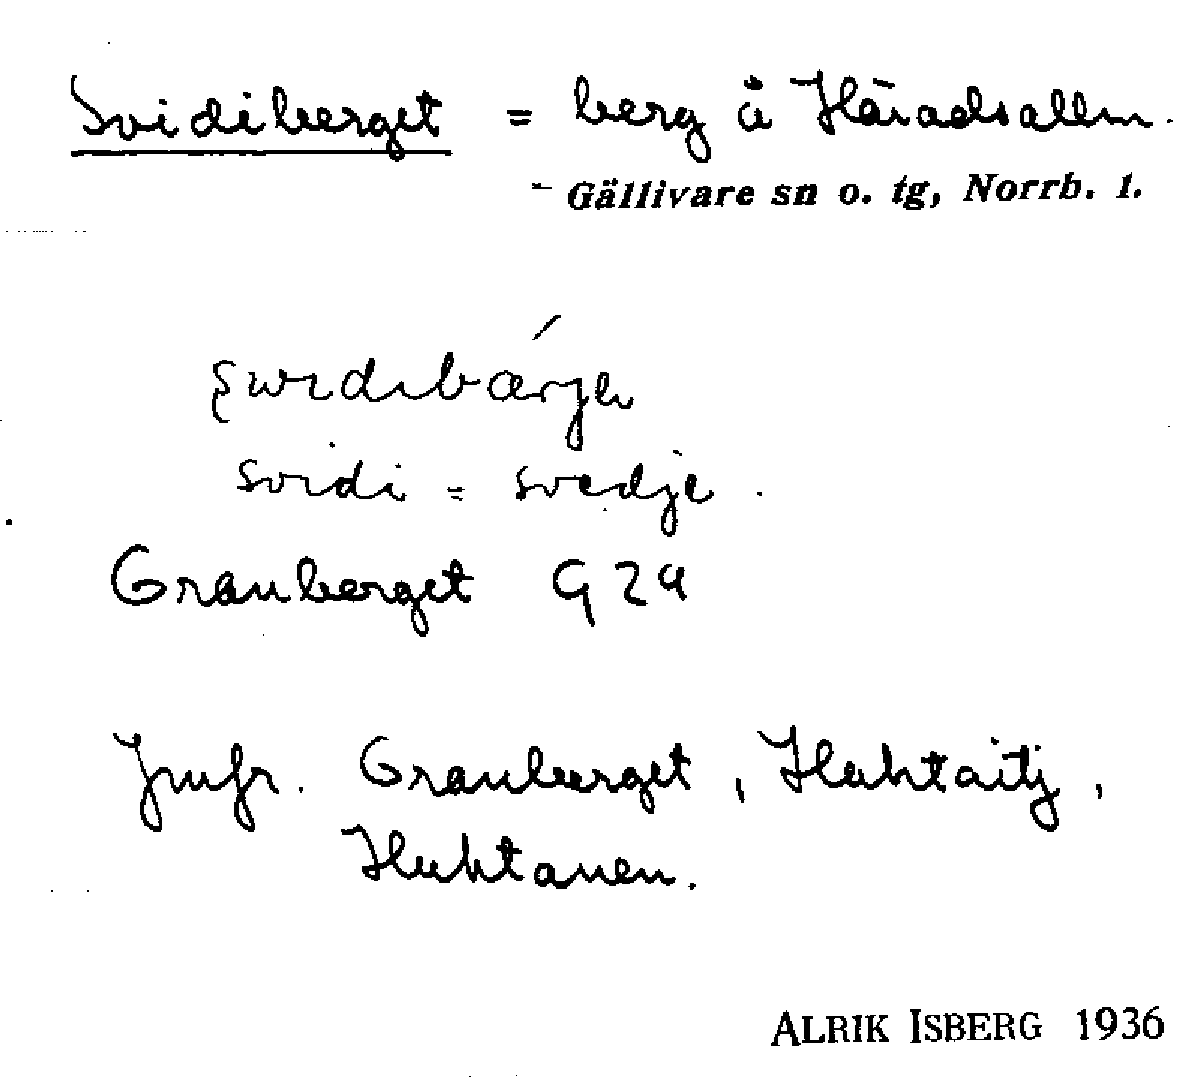 Svidiberget = berg å Häradsallm.
- Gällivare sn o. tg, Norrb. l.
svidi = svedje.
Granberget G 29
Jmfr. Granberget, Huhtaitj,
Huhtanen.
ALRIK ISBERG 1936